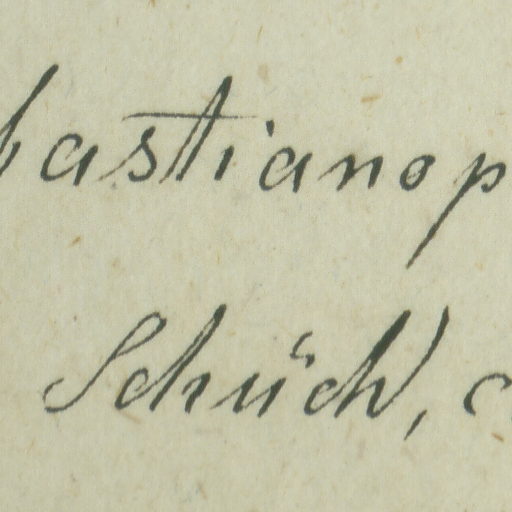 bastianop
Schüch, c